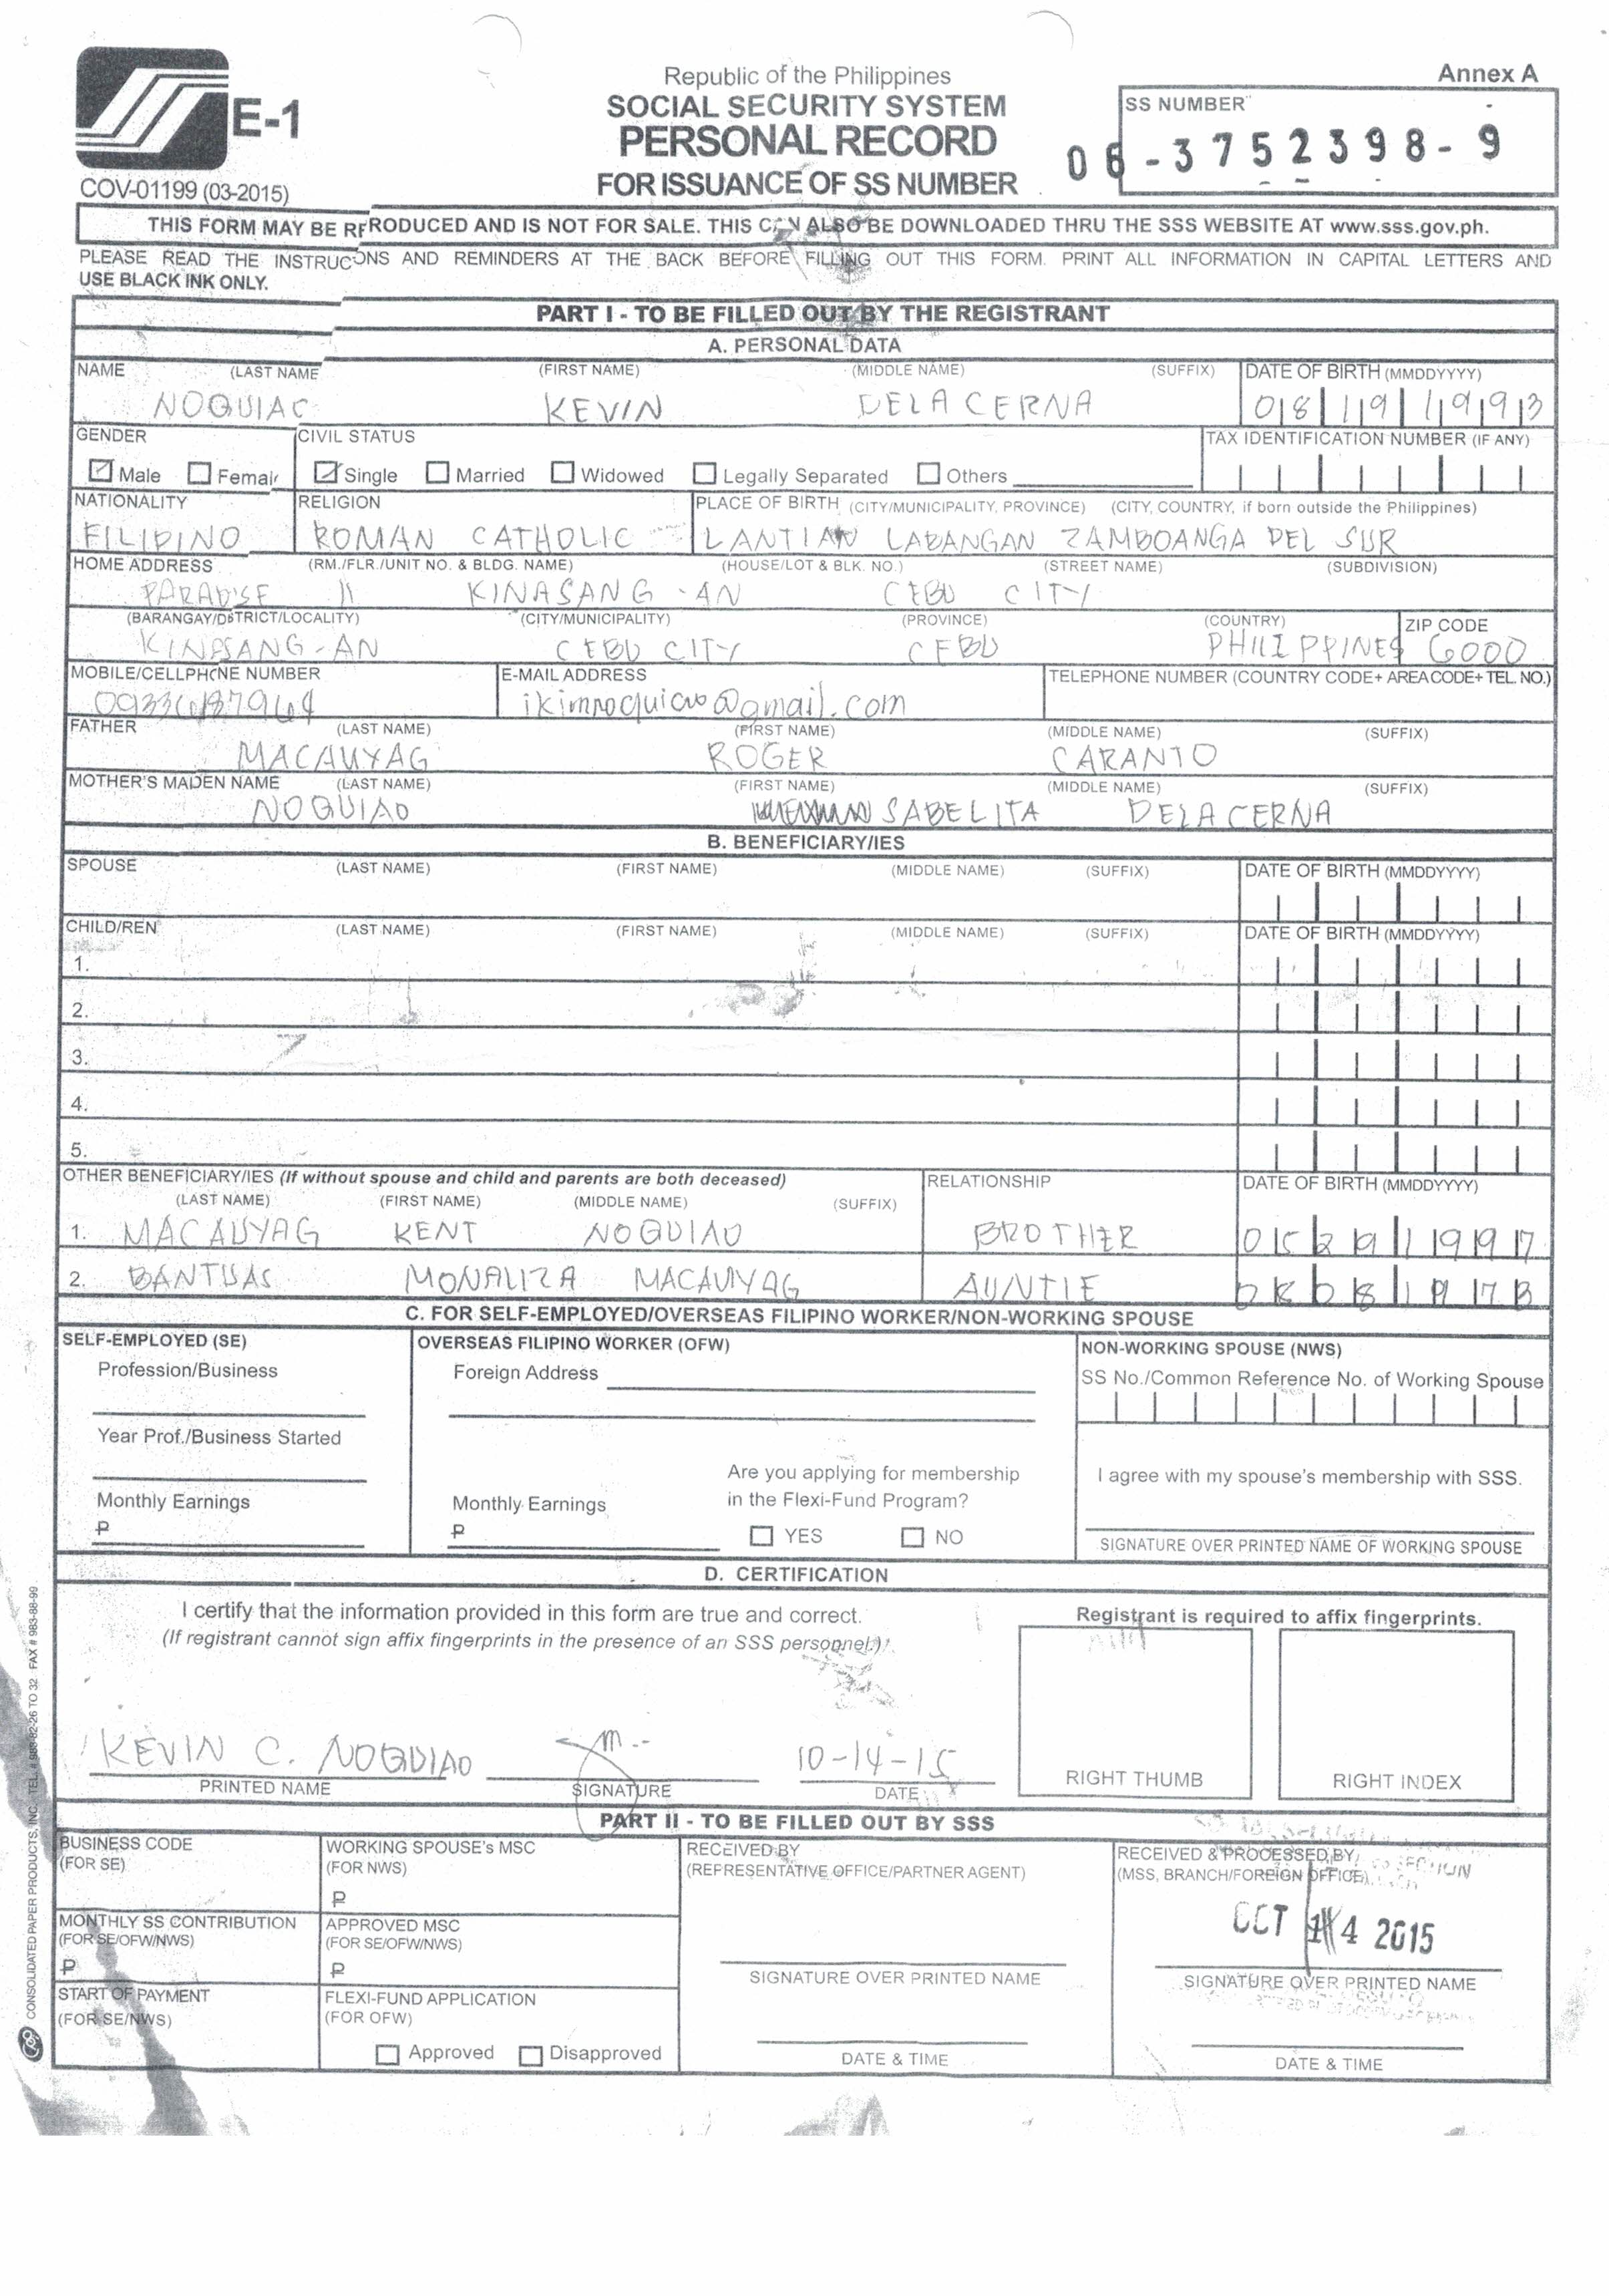 Annex A
Republic of the Philippines
SOCIAL SECURITY SYSTEM
PERSONAL RECORD
FOR ISSUANCE OF SS NUMBER
E-1
COV-01199 (03-2015)
SS NUMBER
06-3752398-9
THIS FORM MAY BE RERODUCED AND IS NOT FOR SALE. THIS CAN ALSO BE DOWNLOADED THRU THE SSS WEBSITE AT www.sss.gov.ph.
PLEASE READ THE INSTRUCONS AND REMINDERS AT THE BACK BEFORE FILLING OUT THIS FORM. PRINT ALL INFORMATION IN CAPITAL LETTERS AND
USE BLACK INK ONLY.
PART I - TO BE FILLED OUT BY THE REGISTRANT
A. PERSONAL DATA
NAME (LAST NAME (FIRST NAME) (MIDDLE NAME) (SUFFIX) DATE OF BIRTH (MMDDYYYY)
NOQUIAO KEVIN DELA CERNA 08 19 1993
GENDER CIVIL STATUS TAX IDENTIFICATION NUMBER (IF ANY)
Male Female Single Married Widowed Legally Separated Others
NATIONALITY RELIGION PLACE OF BIRTH (CITY/MUNICIPALITY, PROVINCE) (CITY, COUNTRY, if born outside the Philippines)
FILIPINO ROMAN CATHOLIC LANTIAN LABANGAN ZAMBOANGA DEL SUR
HOME ADDRESS (RM./FLR./UNIT NO. & BLDG. NAME) (HOUSE/LOT & BLK. NO.) (STREET NAME) (SUBDIVISION)
PARADISE II KINASANG-AN CEBU CITY
(BARANGAY/DISTRICT/LOCALITY) (CITY/MUNICIPALITY) (PROVINCE) (COUNTRY) ZIP CODE
KINASANG-AN CEBU CITY CEBU PHILIPPINES 6000
MOBILE/CELLPHONE NUMBER E-MAIL ADDRESS TELEPHONE NUMBER (COUNTRY CODE+ AREA CODE+ TEL. NO.)
ikimnoquiao@gmail.com
FATHER (LAST NAME) (FIRST NAME) (MIDDLE NAME) (SUFFIX)
MACAUYAG ROGER CARANTO
MOTHER'S MAIDEN NAME (LAST NAME) (FIRST NAME) (MIDDLE NAME) (SUFFIX)
NOQUIAO SABELITA DELA CERNA
B. BENEFICIARY/IES
SPOUSE (LAST NAME) (FIRST NAME) (MIDDLE NAME) (SUFFIX) DATE OF BIRTH (MMDDYYYY)
CHILD/REN (LAST NAME) (FIRST NAME) (MIDDLE NAME) (SUFFIX) DATE OF BIRTH (MMDDYYYY)
1.
2.
3.
4.
5.
OTHER BENEFICIARY/IES (If without spouse and child and parents are both deceased) RELATIONSHIP DATE OF BIRTH (MMDDYYYY)
(LAST NAME) (FIRST NAME) (MIDDLE NAME) (SUFFIX)
1. MACAUYAG KENT NOQUIAO BROTHER 05 29 1997
2. BANTUAS MONALIZA MACAUYAG AUNTIE
C. FOR SELF-EMPLOYED/OVERSEAS FILIPINO WORKER/NON-WORKING SPOUSE
SELF-EMPLOYED (SE) OVERSEAS FILIPINO WORKER (OFW) NON-WORKING SPOUSE (NWS)
Profession/Business Foreign Address SS No./Common Reference No. of Working Spouse
Year Prof./Business Started
Are you applying for membership I agree with my spouse's membership with SSS.
Monthly Earnings Monthly Earnings in the Flexi-Fund Program?
₱ ₱ YES NO
SIGNATURE OVER PRINTED NAME OF WORKING SPOUSE
D. CERTIFICATION
I certify that the information provided in this form are true and correct. Registrant is required to affix fingerprints.
(If registrant cannot sign affix fingerprints in the presence of an SSS personnel.)
KEVIN C. NOQUIAO 10-14-15
PRINTED NAME SIGNATURE DATE RIGHT THUMB RIGHT INDEX
PART II - TO BE FILLED OUT BY SSS
BUSINESS CODE WORKING SPOUSE's MSC RECEIVED BY RECEIVED & PROCESSED BY
(FOR SE) (FOR NWS) (REPRESENTATIVE OFFICE/PARTNER AGENT) (MSS, BRANCH/FOREIGN OFFICE)
₱
MONTHLY SS CONTRIBUTION APPROVED MSC OCT 14 2015
(FOR SE/OFW/NWS) (FOR SE/OFW/NWS)
₱ ₱ SIGNATURE OVER PRINTED NAME SIGNATURE OVER PRINTED NAME
START OF PAYMENT FLEXI-FUND APPLICATION
(FOR SE/NWS) (FOR OFW)
Approved Disapproved DATE & TIME DATE & TIME
CONSOLIDATED PAPER PRODUCTS, INC. TEL. # 983-82-26 TO 32 FAX # 983-88-99